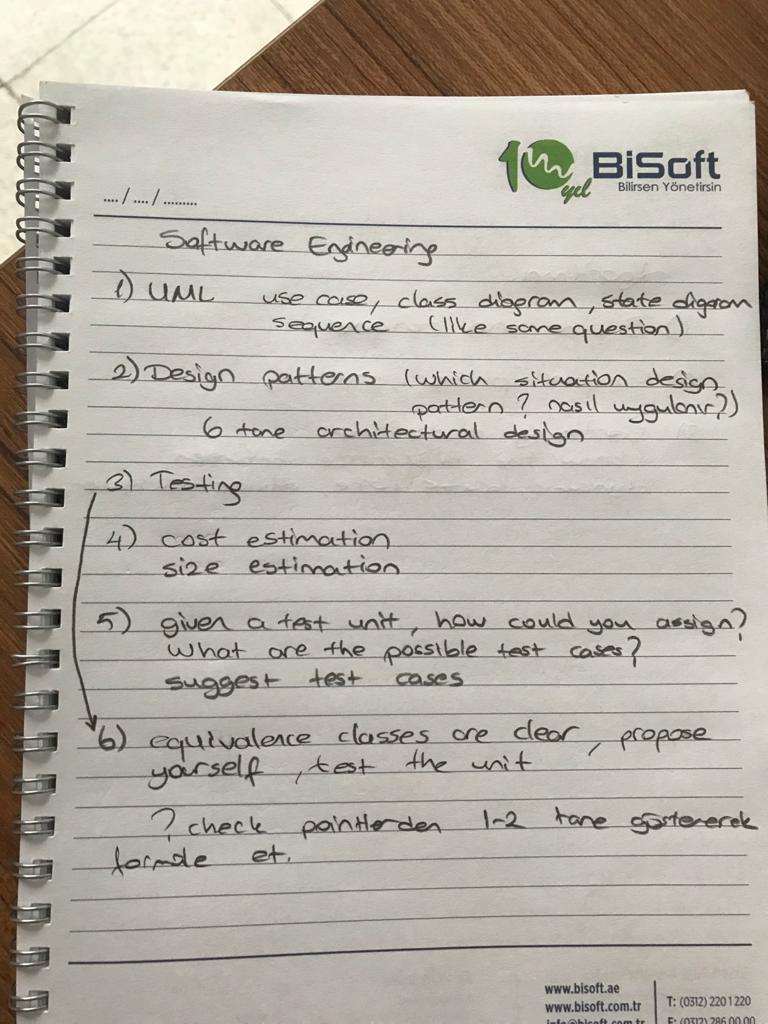 10 yıl BiSoft
Bilirsen Yönetirsin
.... / .... / .........
Software Engineering
1) UML use case, class diagram, state digram
sequence (like same question)
2) Design patterns (which situation design
pattern? nasıl uygulanır?)
6 tane architectural design
3) Testing
4) cost estimation
size estimation
5) given a test unit, how could you assign?
What are the possible test cases?
suggest test cases
6) equivalence classes are clear, propose
yourself, test the unit
? check pointlerden 1-2 tane göstererek
formüle et.
www.bisoft.ae
www.bisoft.com.tr T: (0312) 220 1 220
info@bisoft.com.tr F: (0312) 286 00 00